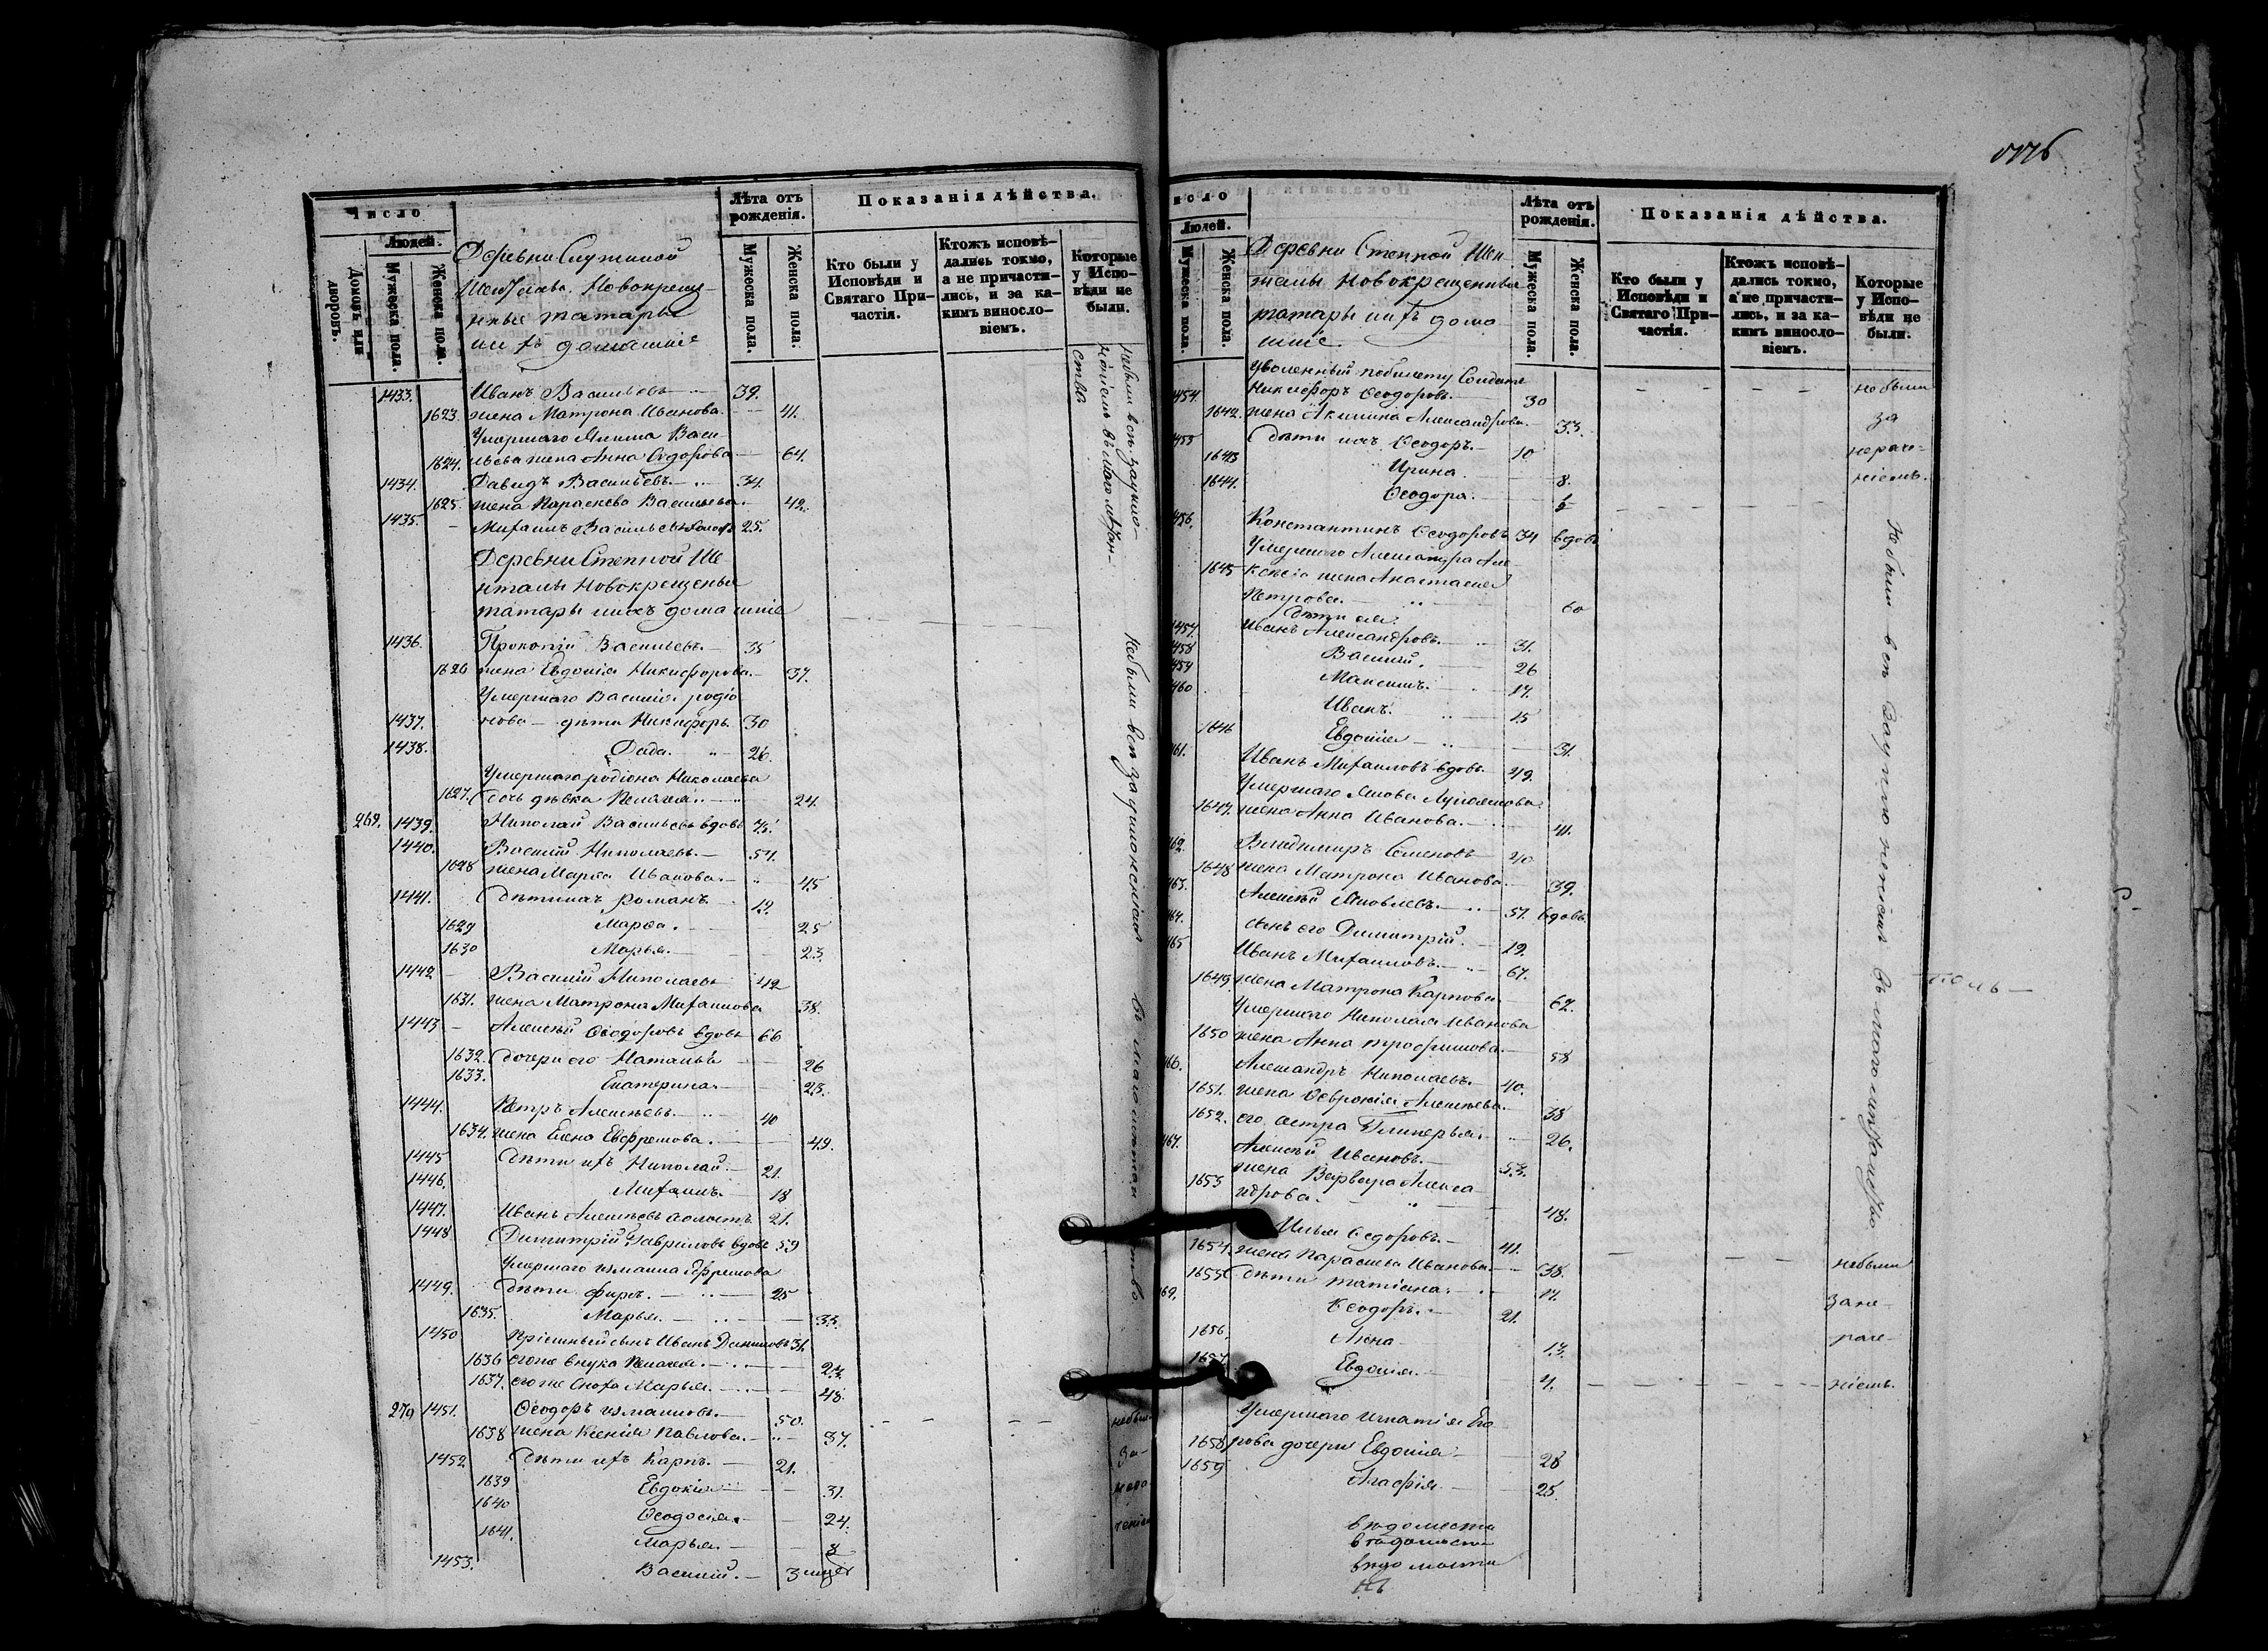 Число
Людей.
Домовъ или дворовъ.
Мужеска пола.
Женска пола.
Лѣта отъ рожденія.
Мужеска пола.
Женска пола.
Показанія дѣйства.
Кто были у Исповѣди и Святаго Причастія.
Ктожъ исповѣдались токмо, а не причастились, и за какимъ винословіемъ.
Которые у Исповѣди не были.
Деревни
Новокреще-
ные татары
ихъ домашніе
1433. Иванъ Васильевъ 39.
1623. жена Матрона Иванова. 41.
Умершаго Васи-
1624. льева жена Анна 64.
1434. Давидъ Васильевъ. 34.
1625. жена Параскева Васильева. 42.
1435. Михаилъ Васильевъ 25.
Деревни Степной Ше
нталы Новокрещеные
татары ихъ домашніе
1436. Прокопій Васильевъ. 35
1626 жена Евдокія Никифорова. 37.
Умершаго Василія родіо
1437. нова дѣти Никифоръ 30
1438. 26.
Умершаго родіона Николаева
1627. дочь дѣвка Пелагея 24.
269. 1439. Николай Васильевъ вдовъ
1440. Василій Николаевъ. 54.
1628 жена Марѳа Иванова. 45
1441. Дѣти ихъ Романъ 12.
1629 Марѳа. 25
1630 Марья. 23.
1442 Василій Николаевъ 42
1631. жена Матрона Михаилова 38.
1443 Алексѣй Ѳеодоровъ вдовъ 66
1632. дочери его Наталья 26
1633. Екатерина 23.
1444. Петръ Алексѣевъ. 40
1634. жена Елена Евфремова. 49.
1445 Дѣти ихъ Николай. 21.
1446. Михаилъ. 18
1447. Иванъ Алексѣевъ холостъ 21.
1448 Димитрій Гавриловъ вдовъ 59
Умершаго Ефремова
1449. Дѣти 25
1635. Марья. 33.
1450 Пріемный сынъ Иванъ Даниловъ 31.
1636 его же внука Пелагея. 23.
1637. его же сноха Марья. 48.
270 1451. Ѳеодоръ Измаиловъ. 50.
1638 жена Ксенія Павлова. 37.
1452. Дѣти ихъ Карпъ. 21.
1639 Евдокія 31.
1640 Ѳеодосія. 24.
1641. Марья. 8
1453. Василій. 3
Не были всѣ за уклоненіемъ въ магометанство
Людей.
Мужеска пола.
Женска пола.
Лѣта отъ рожденія.
Мужеска пола.
Женска пола.
Показанія дѣйства.
Кто были у Исповѣди и Святаго Причастія.
Ктожъ исповѣдались токмо, а не причастились, и за какимъ винословіемъ.
Которые у Исповѣди не были.
Деревни Степной Шен
талы Новокрещенные
татары ихъ дома
шніе
Уволенный по билету Солдатъ
1454. Никифоръ Ѳеодоровъ. 30 не были
1642. жена Акилина Александрова. 33. за
1455 Дѣти ихъ Ѳеодоръ. 10 нераче-
1643 Ирина 8. ніемъ.
1644. Ѳеодора. 5
1456. Константинъ Ѳеодоровъ 34 вдовъ
Умершаго Александра Але
1645 жена Анастасія
Петрова. 60
Дѣти ея.
1457. Иванъ Александровъ. 31.
1458 Василій. 26
1459 Максимъ. 17.
1460 Иванъ. 15
1646 Евдокія 31.
461. Иванъ Михаиловъ вдовъ 49.
Умершаго
1647. жена Анна Иванова. 41.
462. Владимиръ Семеновъ 40
1648 жена Матрона Иванова. 39.
463. Алексѣй Яковлевъ. 57. вдовъ
464. сынъ его Димитрій. 19.
465 Иванъ Михаиловъ. 67.
1649. жена Матрона Карпова. 62.
Умершаго Николая Иванова
1650 жена Анна трофимова. 58
466. Александръ Николаевъ. 40.
1651. жена Ѳевронія Алексѣева. 38
1652. его сестра Гликерья. 26.
467. Алексѣй Ивановъ. 53.
1653 жена Варвара Алекса
ндрова. 48.
Илья Ѳедоровъ. 41.
1654. жена Параскева Иванова. 38. не были
1655 Дѣти татіана. 17. за не-
69. Ѳеодоръ. 21. раче-
1656. Анна 13.
1657. Евдокія. 4. ніемъ.
Умершаго Игнатія Его
1658 рова дочери Евдокія 28
1659 Агафія 25.
Не были всѣ за уклоненіемъ въ магометанство
вѣдомости
вѣдомости
вѣдомости